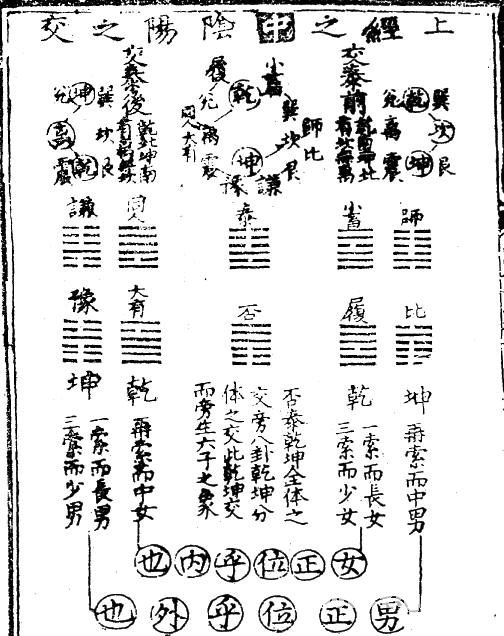 上經之中陰陽之交
巽乾兌
坎離
艮坤震
交泰前
乾南坤北
小畜
履
乾
巽
兌
師比
坎
離
同人大有
艮
坤
震
謙
豫
乾北坤南
巽坤兌
坎離
艮乾震
師
小畜
泰
同人
謙
比
履
否
大有
豫
坤
再索而中男
乾
一索而長女
三索而少女
否泰乾坤全体之
交旁八卦乾坤分
体之交此乾坤交
而旁生六子之象
乾
再索而中女
坤
一索而長男
三索而少男
女正位乎内也
男正位乎外也